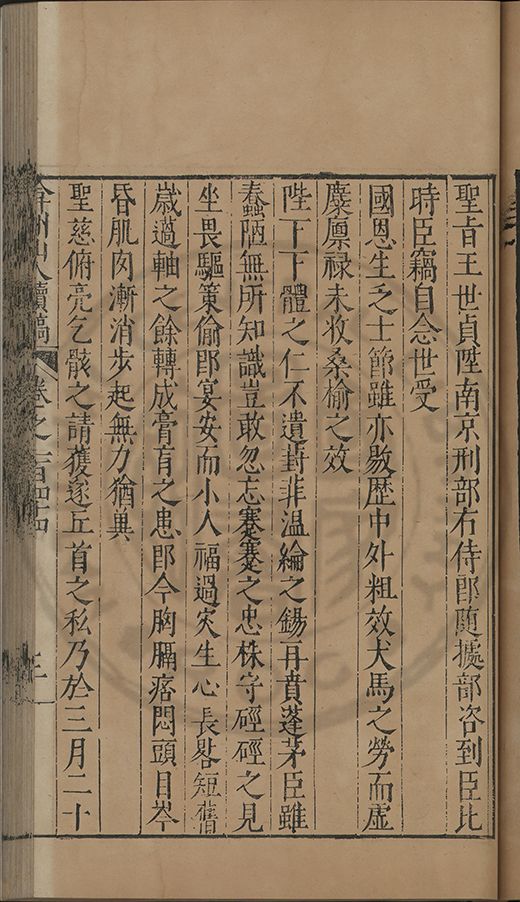 聖旨王世貞陞南京刑部右侍郎隨據部咨到臣比
時臣竊自念世受
國恩生乏士節雖亦敭歷中外粗效犬馬之勞而虛
麋廪禄未收桑榆之效
陛下下體之仁不遺葑菲温綸之錫再賁蓬茅臣雖
蠢陋無所知識豈敢忽忘蹇蹇之忠株守硜硜之見
坐畏驅策偷即宴安而小人福過灾生心長畧短舊
歲薖軸之餘轉成膏肓之患即今胸膈痞悶頭目岑
昏肌肉漸消步起無力猶兾
聖慈俯亮乞骸之請獲遂丘首之私乃於三月二十
弇州山人續稿 卷之一百四十四 三